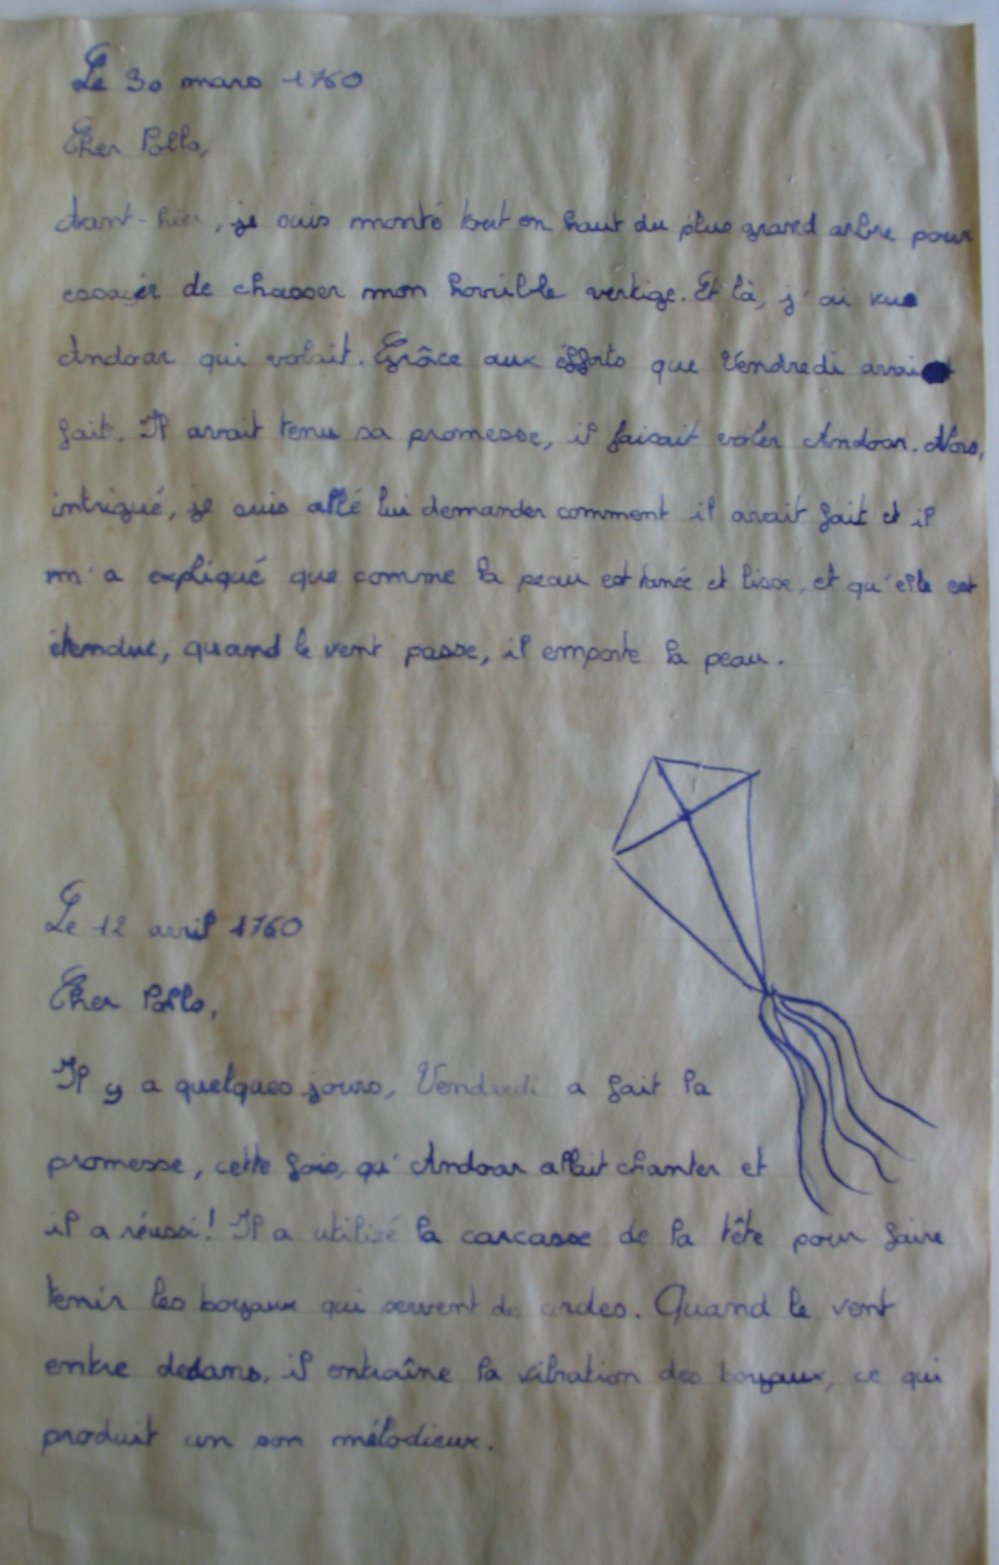 Le 30 mars 1760
Cher Pollo,
Avant-hier, je suis monté tout en haut du plus grand arbre pour
essayer de chasser mon horrible vertige. Et là, j'ai vu
Andoar qui volait. Grâce aux éfforts que Vendredi avait
fait. Il avait tenu sa promesse, il faisait voler Andoar. Alors,
intrigué, je suis allé lui demander comment il avait fait et il
m'a expliqué que comme la peau est tanée et lisse, et qu'elle est
étendue, quand le vent passe, il emporte la peau.
Le 12 avril 1760
Cher Pollo,
Il y a quelques jours, Vendredi a fait la
promesse, cette fois, qu'Andoar allait chanter et
il a réussi! Il a utilisé la carcasse de la tête pour faire
tenir les boyaux qui servent de cordes. Quand le vent
entre dedans, il entraîne la vibration des boyaux, ce qui
produit un son mélodieux.